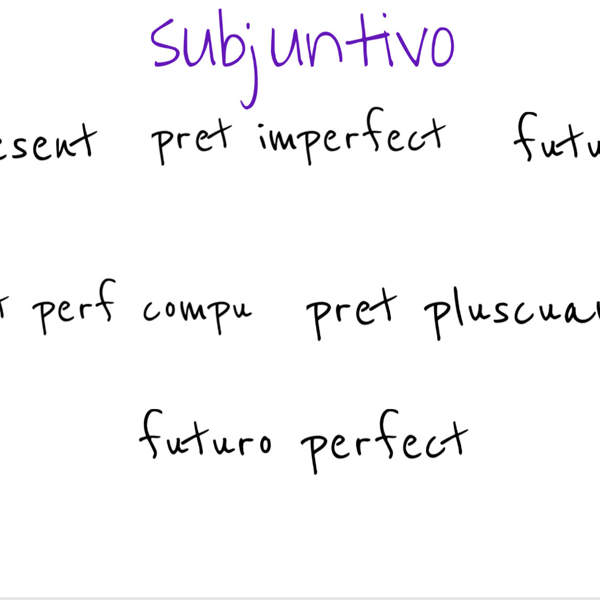 subjuntivo
esent pret imperfect futu
perf compu pret pluscua
futuro perfect